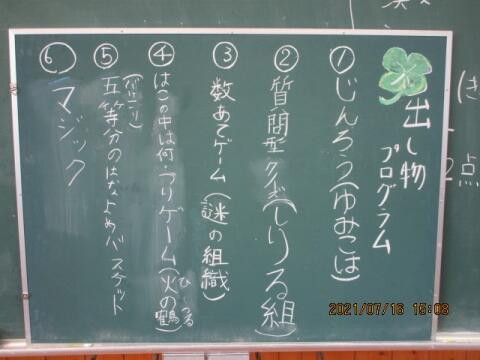 出し物
プログラム
① じんろう(ゆみこは)
② 質問型クイズ(しりる組)
③ 数あてゲーム(謎の組織)
④ はこの中は何・つりゲーム(火の鶴)
ひ つる
⑤ 五等分のはなよめバスケット
⑥ マジック
2021/07/16 15:03
点